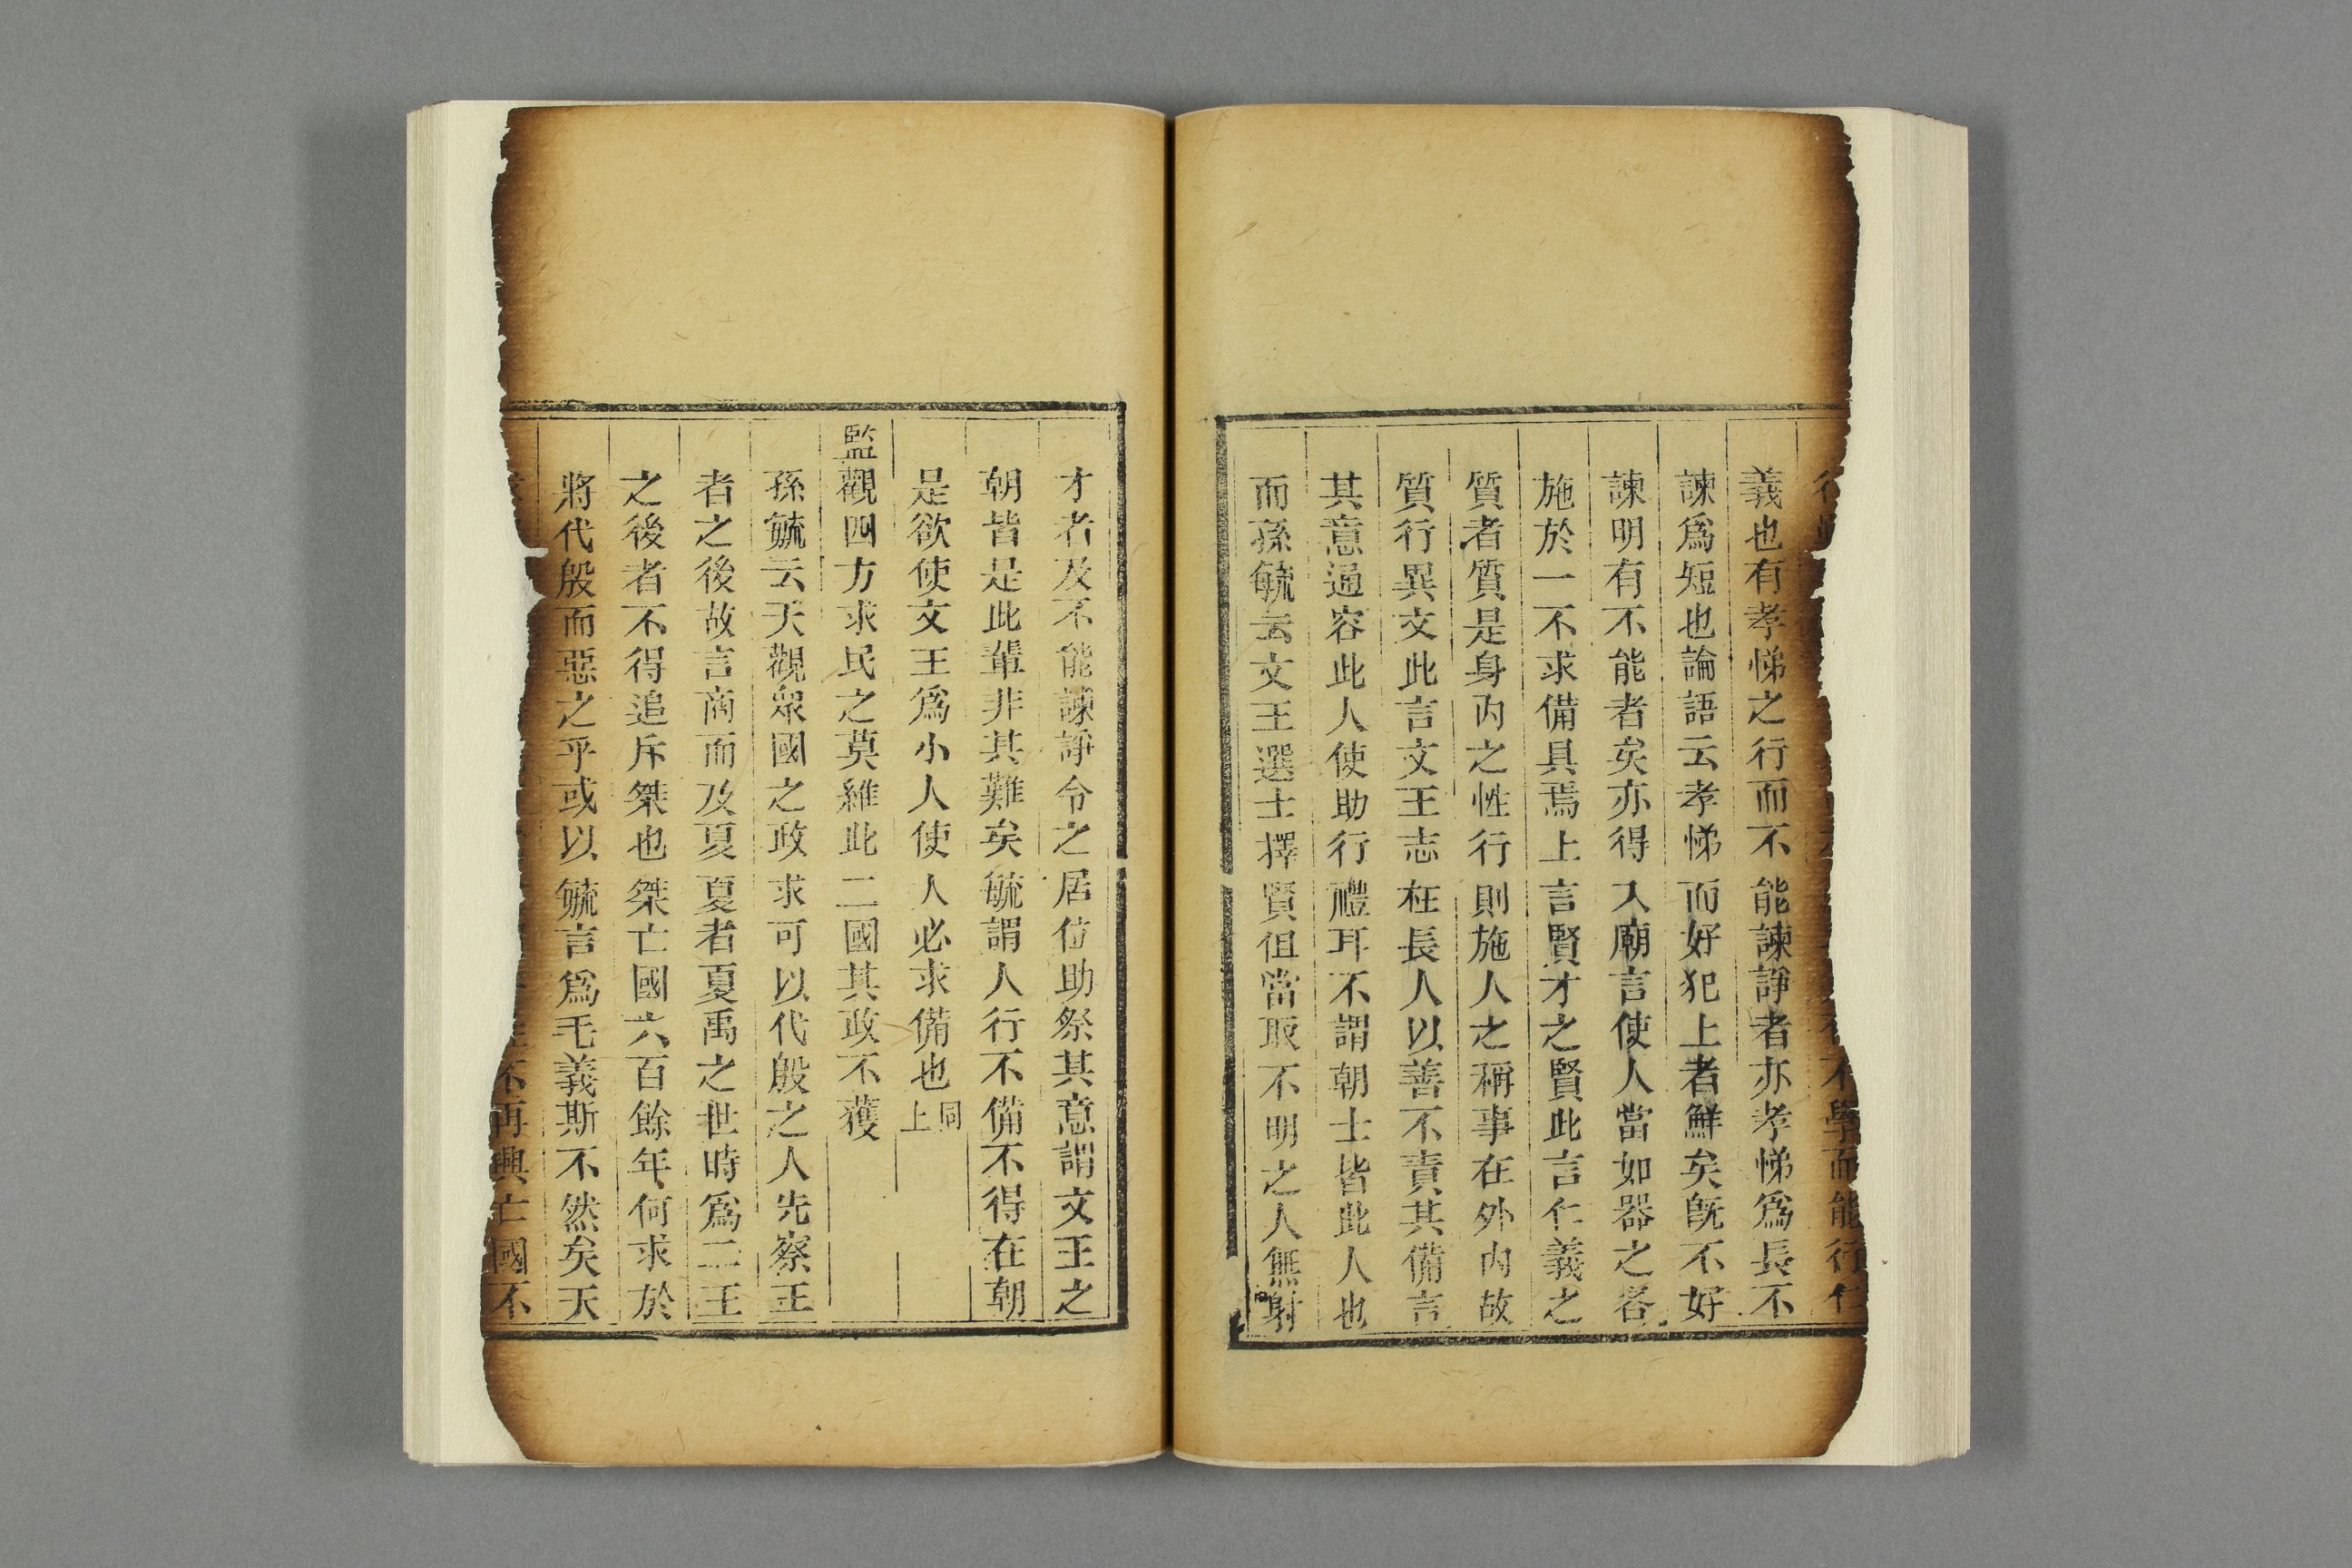 不學而能行仁
義也有孝悌之行而不能諫諍者亦孝悌爲長不
諫爲短也論語云孝悌而好犯上者鮮矣旣不好
諫明有不能者矣亦得入廟言使人當如器之各
施於一不求備具焉上言賢才之賢此言仁義之
質者質是身內之性行則施人之稱事在外內故
質行異文此言文王志在長人以善不責其備言
其意通容此人使助行禮耳不謂朝士皆此人也
而孫毓云文王選士擇賢但當取不明之人無射
才者及不能諫諍令之居位助祭其意謂文王之
朝皆是此輩非其難矣毓謂人行不備不得在朝
是欲使文王爲小人使人必求備也同上
監觀四方求民之莫維此二國其政不獲
孫毓云天觀衆國之政求可以代殷之人先察王
者之後故言商而及夏夏者夏禹之世時爲二王
之後者不得追斥桀也桀亡國六百餘年何求於
將代殷而惡之乎或以毓言爲毛義斯不然矣天
不再興亡國不